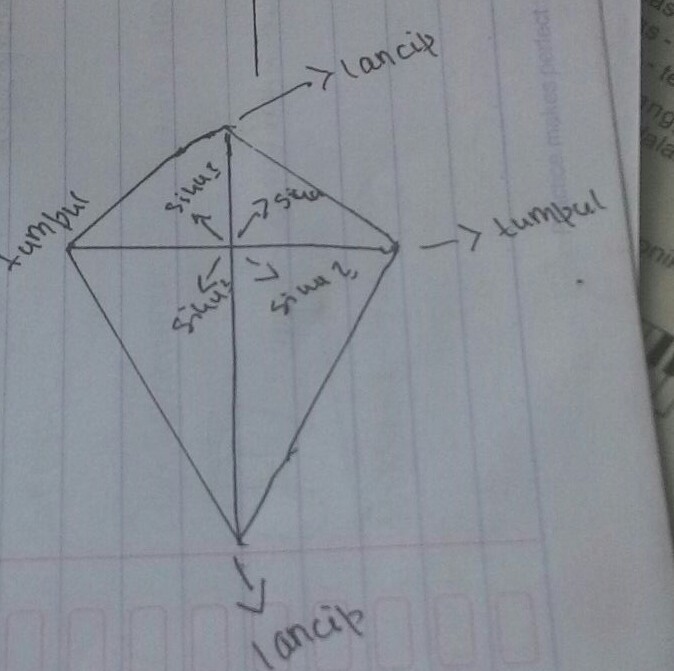 lancip
tumpul
siku2
siku
tumpul
siku2
siku2
lancip
makes perfect